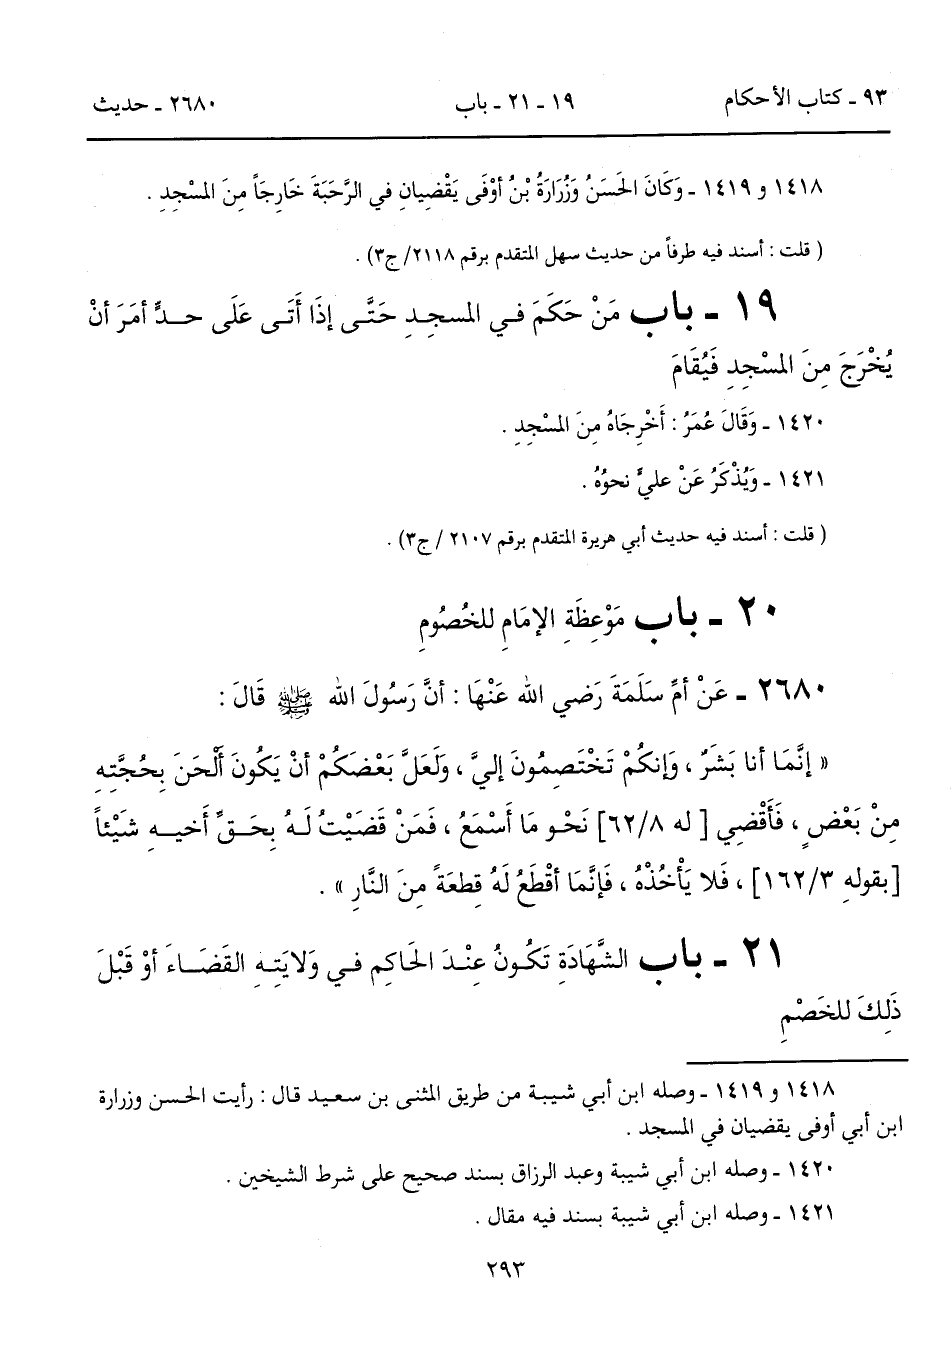 ٩٣ ـ كتاب الأحكام ١٩ ـ ٢١ ـ باب ٢٦٨٠ ـ حديث
١٤١٨ و ١٤١٩ ـ وَكَانَ الحَسَنُ وَزُرَارَةُ بْنُ أوْفَى يَقْضِيانِ في الرَّحَبَةَ خَارِجَاً مِنَ المَسْجِدِ .
( قلت : أسند فيه طرفاً من حديث سهل المتقدم برقم ٢١١٨/ ج٣) .
١٩ ـ باب مَنْ حَكَمَ في المسجِدِ حَتَّى إذَا أَتَى عَلَى حدٍّ أمَرَ أنْ
يُخْرَجَ مِنَ المسْجِدِ فَيُقَامَ
١٤٢٠ ـ وَقَالَ عُمَرُ : أَخْرِجَاهُ مِنَ المسْجِدِ .
١٤٢١ ـ وَيُذْكَرُ عَنْ عليٍّ نحوُهُ .
( قلت : أسند فيه حديث أبي هريرة المتقدم برقم ٢١٠٧ / ج٣) .
٢٠ ـ باب مَوْعِظَةِ الإمَامِ للخُصُومِ
٢٦٨٠ ـ عَنْ أمِّ سَلَمَةَ رَضي الله عَنْهَا : أنَّ رَسُولَ الله ﷺ قَالَ :
« إنَّمَا أنا بَشَرٌ ، وَإنكُمْ تَخْتَصِمُونَ إليَّ ، وَلَعَلَّ بَعْضَكُمْ أنْ يَكُونَ أَلْحَنَ بِحُجَّتِهِ
مِنْ بَعْضٍ ، فَأَقْضِي [ له ٦٢/٨] نَحْوَ مَا أَسْمَعُ ، فَمَنْ قَضَيْتُ لَهُ بِحَقِّ أَخيهِ شَيْئاً
[بقولهِ ١٦٢/٣] ، فَلا يَأْخُذْهُ ، فَإنَّمَا أقْطَعُ لَهُ قِطعَةً مِنَ النَّارِ » .
٢١ ـ باب الشَّهَادَةِ تَكُونُ عِنْدَ الحَاكِمِ في وَلايَتِهِ القَضَاءَ أوْ قَبْلَ
ذَلِكَ للخَصْمِ
١٤١٨ و ١٤١٩ ـ وصله ابن أبي شيبة من طريق المثنى بن سعيد قال : رأيت الحسن وزرارة
ابن أبي أوفى يقضيان في المسجد .
١٤٢٠ ـ وصله ابن أبي شيبة وعبد الرزاق بسند صحيح على شرط الشيخين .
١٤٢١ ـ وصله ابن أبي شيبة بسند فيه مقال .
٢٩٣